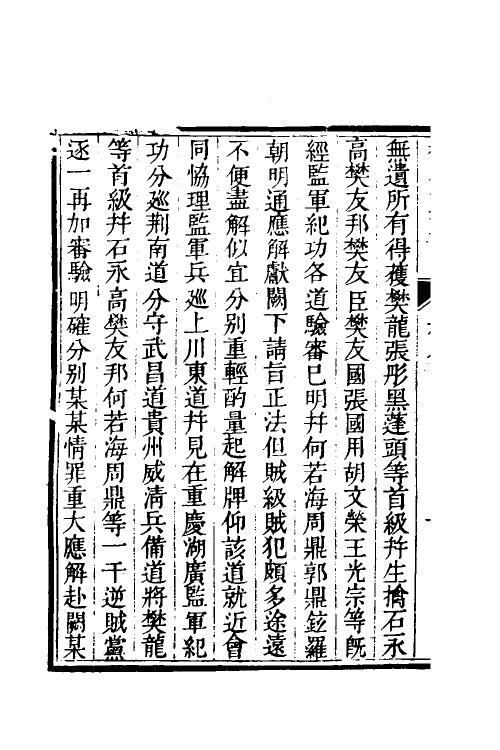 無遺所有得獲樊龍張彤黑蓬頭等首級幷生擒石永
高樊友邦樊友臣樊友國張國用胡文榮王光宗等旣
經監軍紀功各道驗審已明幷何若海周鼎郭鼎鉉羅
朝明通應解獻闕下請旨正法但賊級賊犯頗多途遠
不便盡解似宜分別重輕酌量起解牌仰該道就近會
同恊理監軍兵巡上川東道幷見在重慶湖廣監軍紀
功分廵荆南道分守武昌道貴州威清兵備道將樊龍
等首級幷石永高樊友邦何若海周鼎等一干逆賊黨
逐一再加審驗明確分別某某情罪重大應解赴闕某